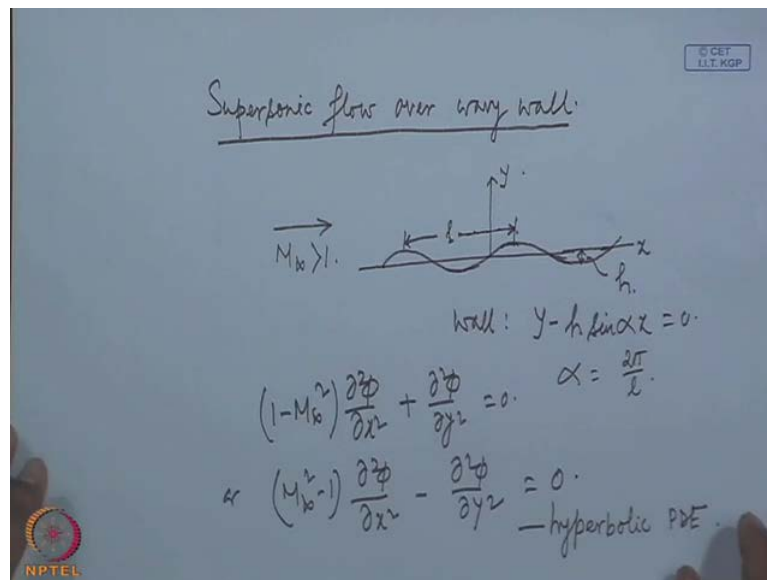 © CET
I.I.T. KGP
Supersonic flow over wavy wall.
y.
M∞>1.
l
x
h.
wall: y - h sin αx = 0.
(1-M∞²) ∂²φ/∂x² + ∂²φ/∂y² = 0. α = 2π/l.
or (M∞²-1) ∂²φ/∂x² - ∂²φ/∂y² = 0.
— hyperbolic PDE.
NPTEL